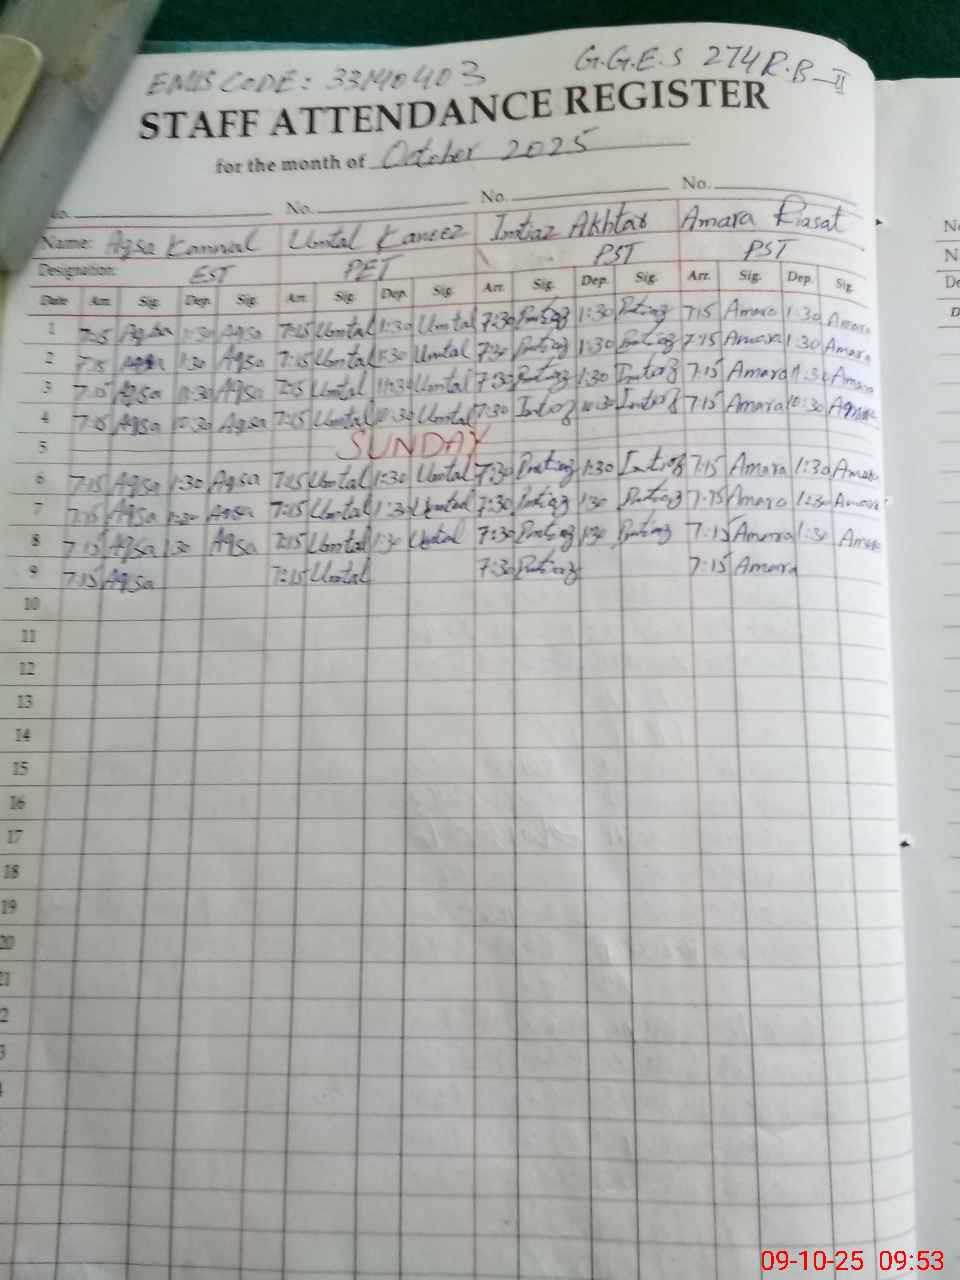 EMIS CODE: 33140403 G.G.E.S 274 R.B-II
STAFF ATTENDANCE REGISTER
for the month of October 2025
No. No. No. No.
Name: Aqsa Kanwal Umtal Kaneez Imtiaz Akhtar Amara Riasat
Designation: EST PET PST PST
Date Arr. Sig. Dep. Sig. Arr. Sig. Dep. Sig. Arr. Sig. Dep. Sig. Arr. Sig. Dep. Sig.
1 7:15 Aqsa 1:30 Aqsa 7:15 Umtal 1:30 Umtal 7:30 1:30 7:15 Amara 1:30 Amara
2 7:15 Aqsa 1:30 Aqsa 7:15 Umtal 1:30 Umtal 7:30 1:30 7:15 Amara 1:30 Amara
3 7:15 Aqsa 11:30 Aqsa 7:15 Umtal 11:30 Umtal 7:30 1:30 7:15 Amara 11:30 Amara
4 7:15 Aqsa 10:30 Aqsa 7:15 Umtal 10:30 Umtal 7:30 10:30 7:15 Amara 10:30 Amara
5 SUNDAY
6 7:15 Aqsa 1:30 Aqsa 7:15 Umtal 1:30 Umtal 7:30 1:30 7:15 Amara 1:30 Amara
7 7:15 Aqsa 1:30 Aqsa 7:15 Umtal 1:30 Umtal 7:30 1:30 7:15 Amara 1:30 Amara
8 7:15 Aqsa 1:30 Aqsa 7:15 Umtal 1:30 Umtal 7:30 1:30 7:15 Amara 1:30 Amara
9 7:15 Aqsa 7:15 Umtal 7:30 7:15 Amara
10
11
12
13
14
15
16
17
18
19
20
21
09-10-25 09:53